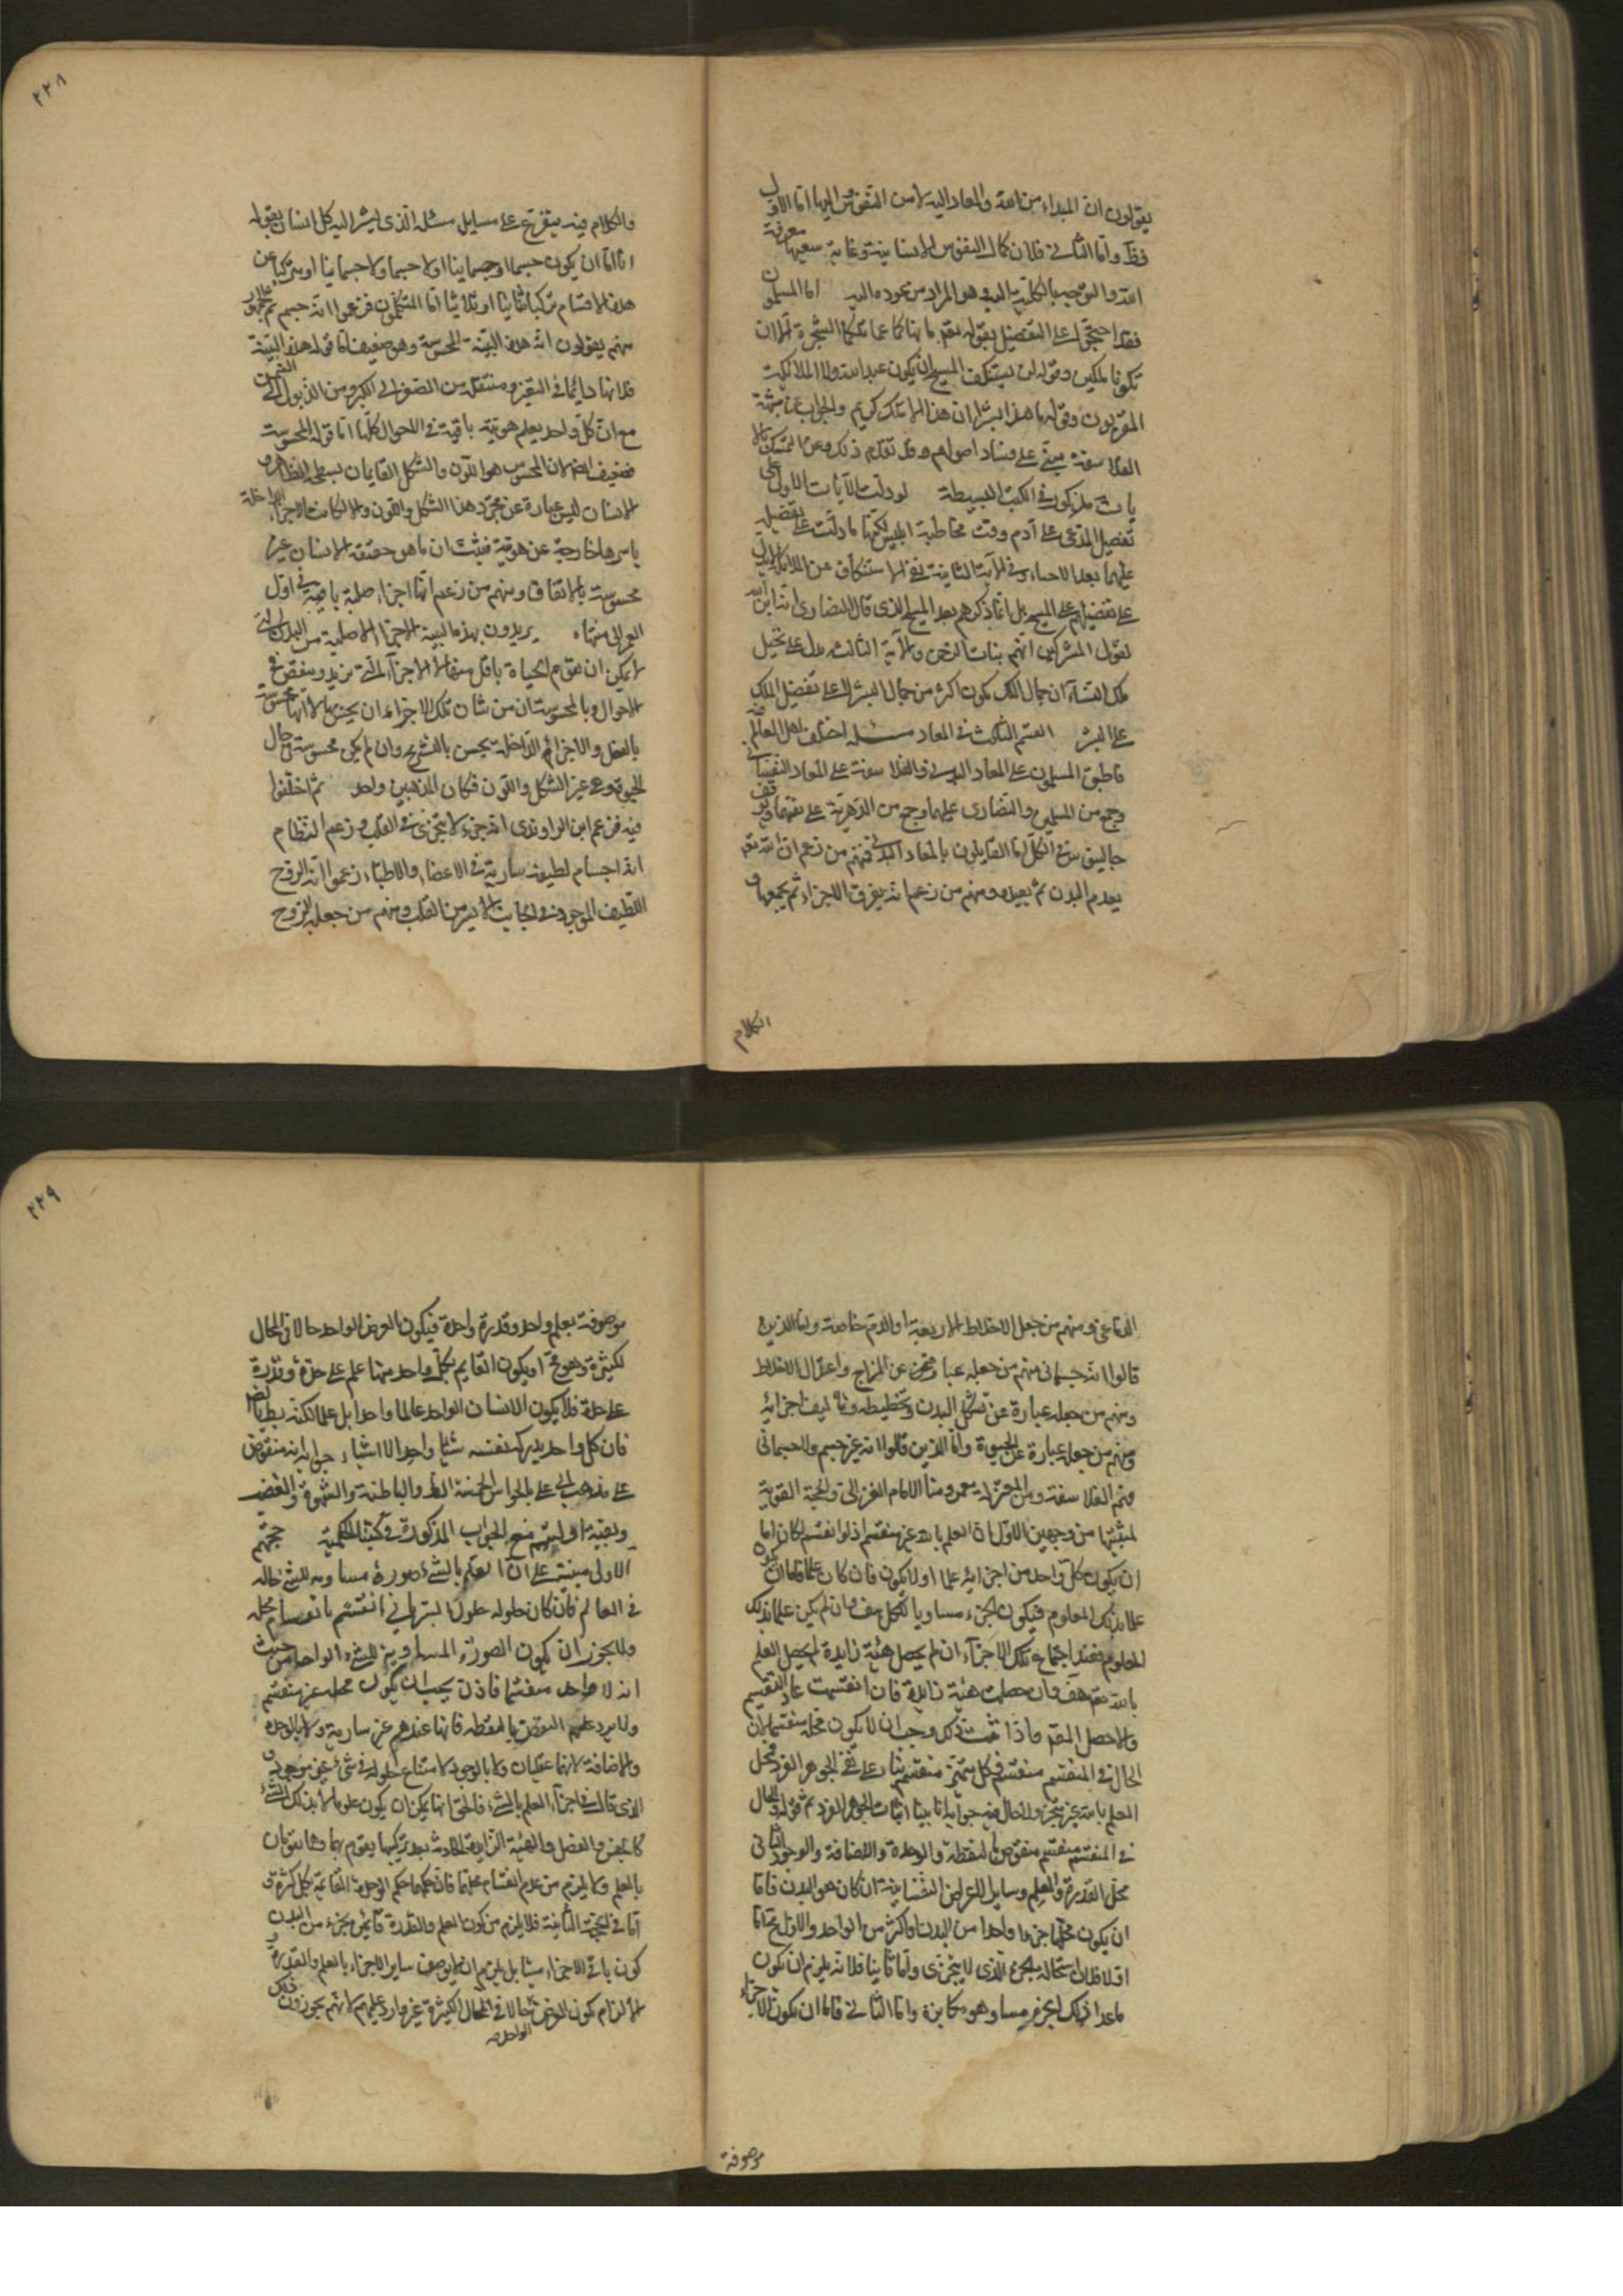 يقولون ان المبداء من الله والمعاد اليه لا من النفوس اليها اما الاول
فظ واما الثانى فلان كمال النفوس الانسانية وغاية سعيها معرفة
الله والتوجه بالكلية اليه وهو المراد من عوده اليه اما المسلمون
فقد احتجوا على التفضيل بقوله تعم ما نهاكما عن تلكما الشجرة الا ان
تكونا ملكين وقوله لن يستنكف المسيح ان يكون عبدا لله ولا الملائكة
المقربون وقوله ما هذا بشرا ان هذا الا ملك كريم والجواب عن شبهة
الفلاسفة مبنى على فساد اصولهم وقد تقدم ذلك وعن التمسك بالا
يات مذكور فى الكتب البسيطة لو دلت الآيات الاولى على
تفضيل المدعى على آدم وقت مخاطبة ابليس لكنها ما دلت على تفضيله
عليهما بعد الاجتباء وفى الآية الثانية نفى الاستنكاف عن الملائكة لا يدل
على تفضيلهم على المسيح بل انما ذكرهم بعد المسيح الذى قال النصارى انه ابن الله
لقول المشركين انهم بنات الرحمن والآية الثالثة يدل على تخيل
تلك النساء ان جمال الملك يكون اكثر من جمال البشر لا على تفضيل الملك
على البشر القسم الثالث فى المعاد مسئلة اختلف اهل العالم فيه
فاطبق المسلمون على المعاد البدنى والفلاسفة على المعاد النفسانى
وجمع من المسلمين والنصارى عليهما وجمع من الدهرية على نفيهما وتوقف
جالينوس فى الكل اما القايلون بالمعاد البدنى فمنهم من زعم ان الله تعم
يعدم البدن ثم يعيده ومنهم من زعم انه يفرق الاجزاء ثم يجمعها و
الكلام
٢٢٨
والكلام فيه يتفرع على مسايل مسئلة الذى يشير اليه كل انسان بقوله
انا اما ان يكون جسما او جسمانيا او لا جسما ولا جسمانيا او مركبا عن
هذه الاقسام تركيبا ثنائيا او ثلاثيا اما المتكلمون فزعموا انه جسم ثم الجمهور
منهم يقولون انه هذه البنية المحسوسة وهو ضعيف اما قوله هذه البنية
فلانها دايما فى التغير ومنتقلة من الصغر الى الكبر ومن الذبول الى السمن
مع ان كل واحد يعلم هويته باقية فى الاحوال كلها اما قوله المحسوسة
فضعيف ايضا لان المحسوس هو اللون والشكل القايمان بسطحه الظاهر و
الانسان ليس عبارة عن مجرد هذا الشكل واللون والا لكانت الاجزاء الداخلة
باسرها خارجة عن هويته فيثبت ان ما هو حقيقة الانسان غير
محسوسة بالاتفاق ومنهم من زعم انها اجزاء اصلية باقية فى اول
العمر الى منتهاه يريدون بهذه البنية الاجزاء الاصلية من البدن التى
لا يمكن ان تقوم الحياة باقل منها لا الاجزاء التى تزيد وينقص فى
الاحوال وبالمحسوسة ان من شان تلك الاجزاء ان يحس بها لا انها محسوسة
بالفعل والاجزاء الداخلة يحس بالتشريح وان لم يكن محسوسة فى حال
الحيوة وهى غير الشكل واللون فكان المذهبين واحد ثم اختلفوا
فيه فزعم ابن الراوندى انه جزء لا يتجزى فى القلب وزعم النظام
انه اجسام لطيفة سارية فى الاعضاء والاطباء زعموا انه الروح
اللطيف الموجود فى الجانب الايسر من القلب ومنهم من جعله الروح
الدماغى ومنهم من جعل الاخلاط الاربعة او الدم خاصة واما الذين
قالوا انه جسمانى منهم من جعله عبارة عن المزاج واعتدال الاخلاط
ومنهم من جعله عبارة عن تشكل البدن وتخطيطه وتاليف اجزائه
ومنهم من جعله عبارة عن الحيوة واما الذين قالوا انه غير جسم ولا جسمانى
فهم الفلاسفة ومن المعتزلة معمر ومنا الامام الغزالى والحجة القوية
لمثبتيها من وجهين الاول ان العلم بالله غير منقسم اذ لو انقسم لكان اما
ان يكون كل واحد من اجزائه علما او لا يكون فان كان علما فاما ان يكون
علما بذلك المعلوم فيكون الجزء مساويا للكل هف وان لم يكن علما بذلك
المعلوم فعند اجتماع تلك الاجزاء ان لم يحصل هيئة زايدة لم يحصل العلم
بالله تعم هف وان حصلت هيئة زايدة فان انقسمت عاد التقسيم
والا حصل المقصد واذا ثبت ذلك وجب ان لا يكون محله منقسما لان
الحال فى المنقسم منقسم وكل متحيز منقسم بناء على نفى الجوهر الفرد فمحل
العلم بالله غير متحيز ولا حال فيه جوابه انا بينا اثبات الجوهر الفرد ثم قوله الحال
فى المنقسم منقسم منقوض بالنقطة والوحدة والاضافة والوجود الثانى
محل القدرة والعلم وساير الاعراض النفسانية ان كان هو البدن فاما
ان يكون محلها جزءا واحدا من البدن او اكثر من الواحد والاول مح اما
اولا فلاستحالة الجزء الذى لا يتجزى واما ثانيا فلانه يلزم ان يكون
ما عدا ذلك الجزء ميتا وهو مكابرة واما الثانى فاما ان يكون الاجزاء
موصوفة
٢٢٩
موصوفة بعلم واحد وقدرة واحدة فيكون العرض الواحد حالا فى المحال
الكثيرة وهو مح او يكون القايم بكل واحد منها علم على حدة وقدرة
على حدة فلا يكون الانسان الواحد عالما واحدا بل علما لكنه بط ايضا
فان كل واحد يدرك نفسه شيئا واحدا لا اشياء جوابه انه منقوض
على مذهب ابى على بالحواس الخمسة الظاهرة والباطنة والشهوة والغضب
وبقية اوليتهم مع الجواب المذكورة فى كتبنا الحكمية حجتهم
الاولى مبنية على ان العلم بالشئ صورة مساوية للشئ حالة
فى العالم فان كان حلوله حلول السريانى انقسم بانقسام محله
ولا يجوز ان يكون الصورة المساوية للشئ الواحد من حيث
انه لا واحد منقسما فاذن يجب ان يكون محله غير منقسم
ولا يرد عليهم النقض بالنقطة فانها عندهم غير سارية ولا بالوحدة
والاضافة لانهما عقليان ولا بالوجود لامتناع حلوله فى شئ غير موجود و
الذى قاله فى اجزاء العلم بالشئ فالحق انها يمكن ان يكون علوما لا بذلك الشئ
كالجنس والفصل والهيئة الزايدة الحادثة بعد تركيبها يقوم بهما وهما يقومان
بالعلم ولا يلزم من عدم انقسام علمها فان حكمها حكم الوحدة القائمة بكل كثرة
اما فى الحجة الثانية فلا يلزم من كون العلم والقدرة قائمين بجزء من البدن
كون باقى الاجزاء ميتا بل يلزم ان لا يوصف ساير الاجزاء بالعلم والقدرة و
الالزام كون العرض الواحد حالا فى المحال الكثيرة غير وارد عليهم لانهم يجوزون ذلك